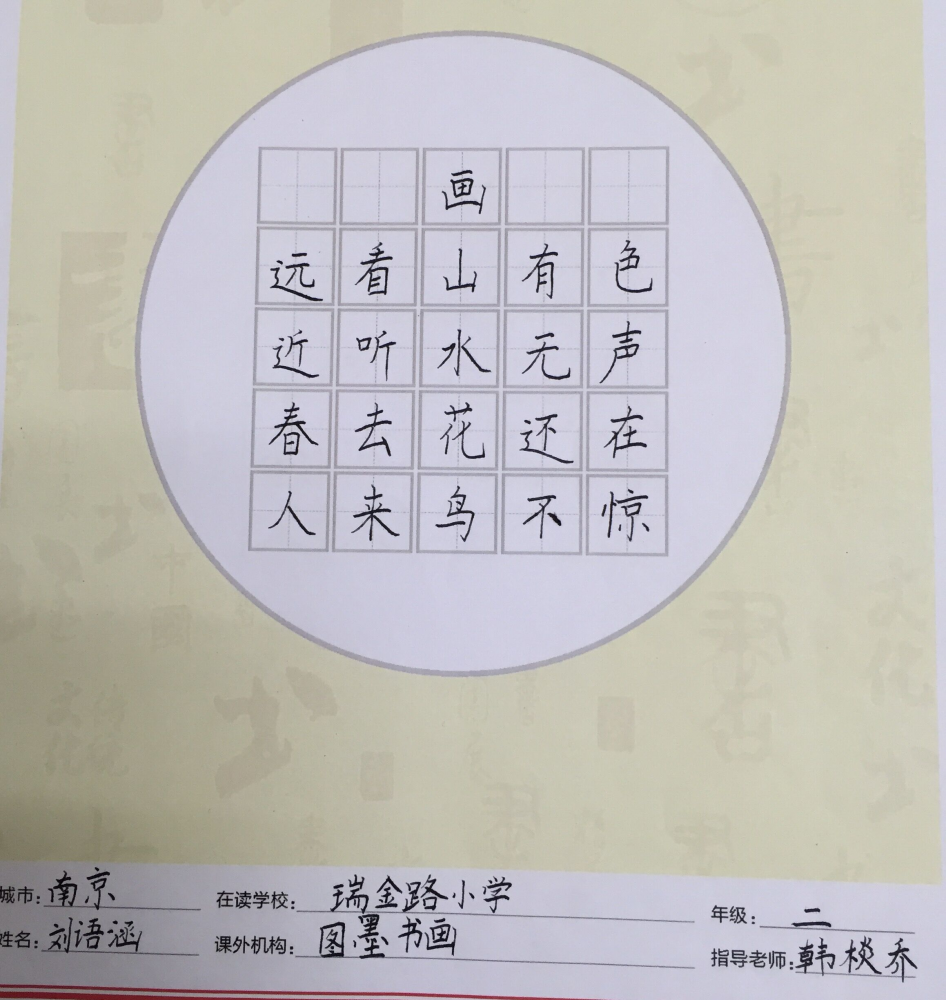 画
远看山有色
近听水无声
春去花还在
人来鸟不惊
城市:南京 在读学校:瑞金路小学 年级:二
姓名:刘语涵 课外机构:图墨书画 指导老师:韩棪乔